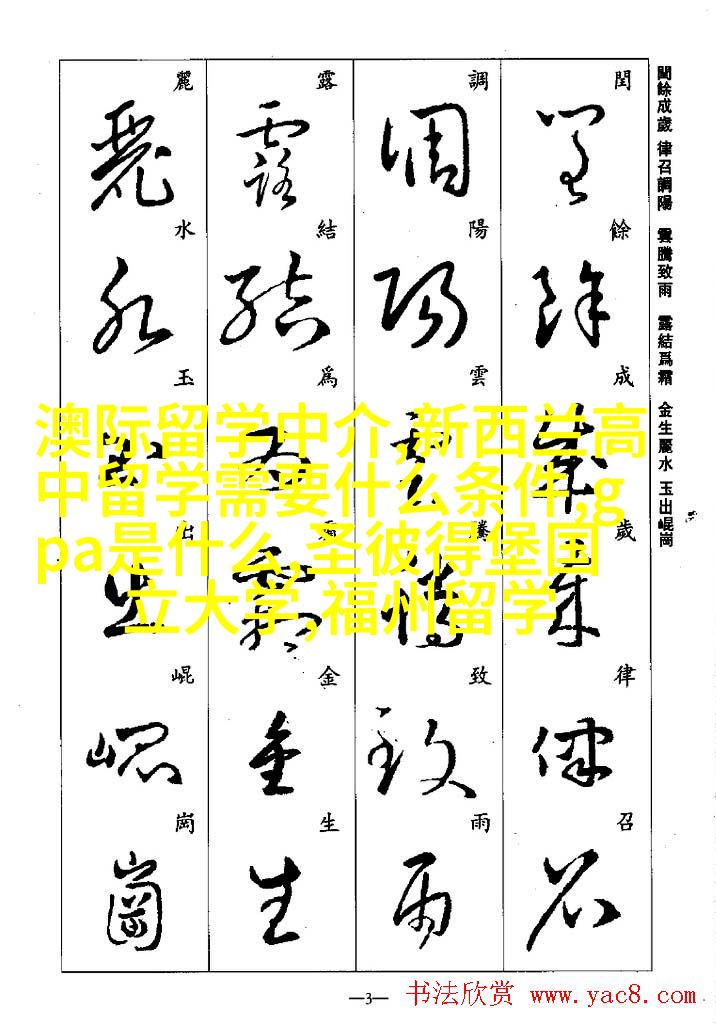 閏餘成歲 律召調陽 雲騰致雨 露結爲霜 金生麗水 玉出崐崗
閏餘成歲律召
調陽雲騰致雨
露結爲霜金生
麗水玉出崐崗
澳际留学中介,新西兰高
中留学需要什么条件,g
pa是什么,圣彼得堡国
立大学,福州留学
—3—
书法欣赏 www.yac8.com